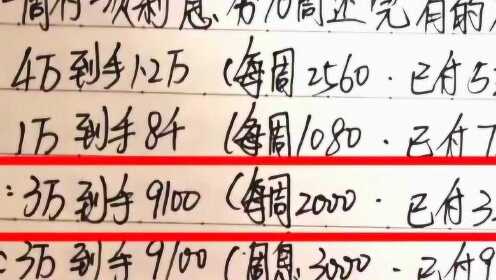 一周付一次利息,分10周还完有的
4万到手1.2万(每周2560.已付5
1万到手8千(每周1080.已付7
:3万到手9100(每周2000.已付3
:3万到手9100(周息3000.已付9